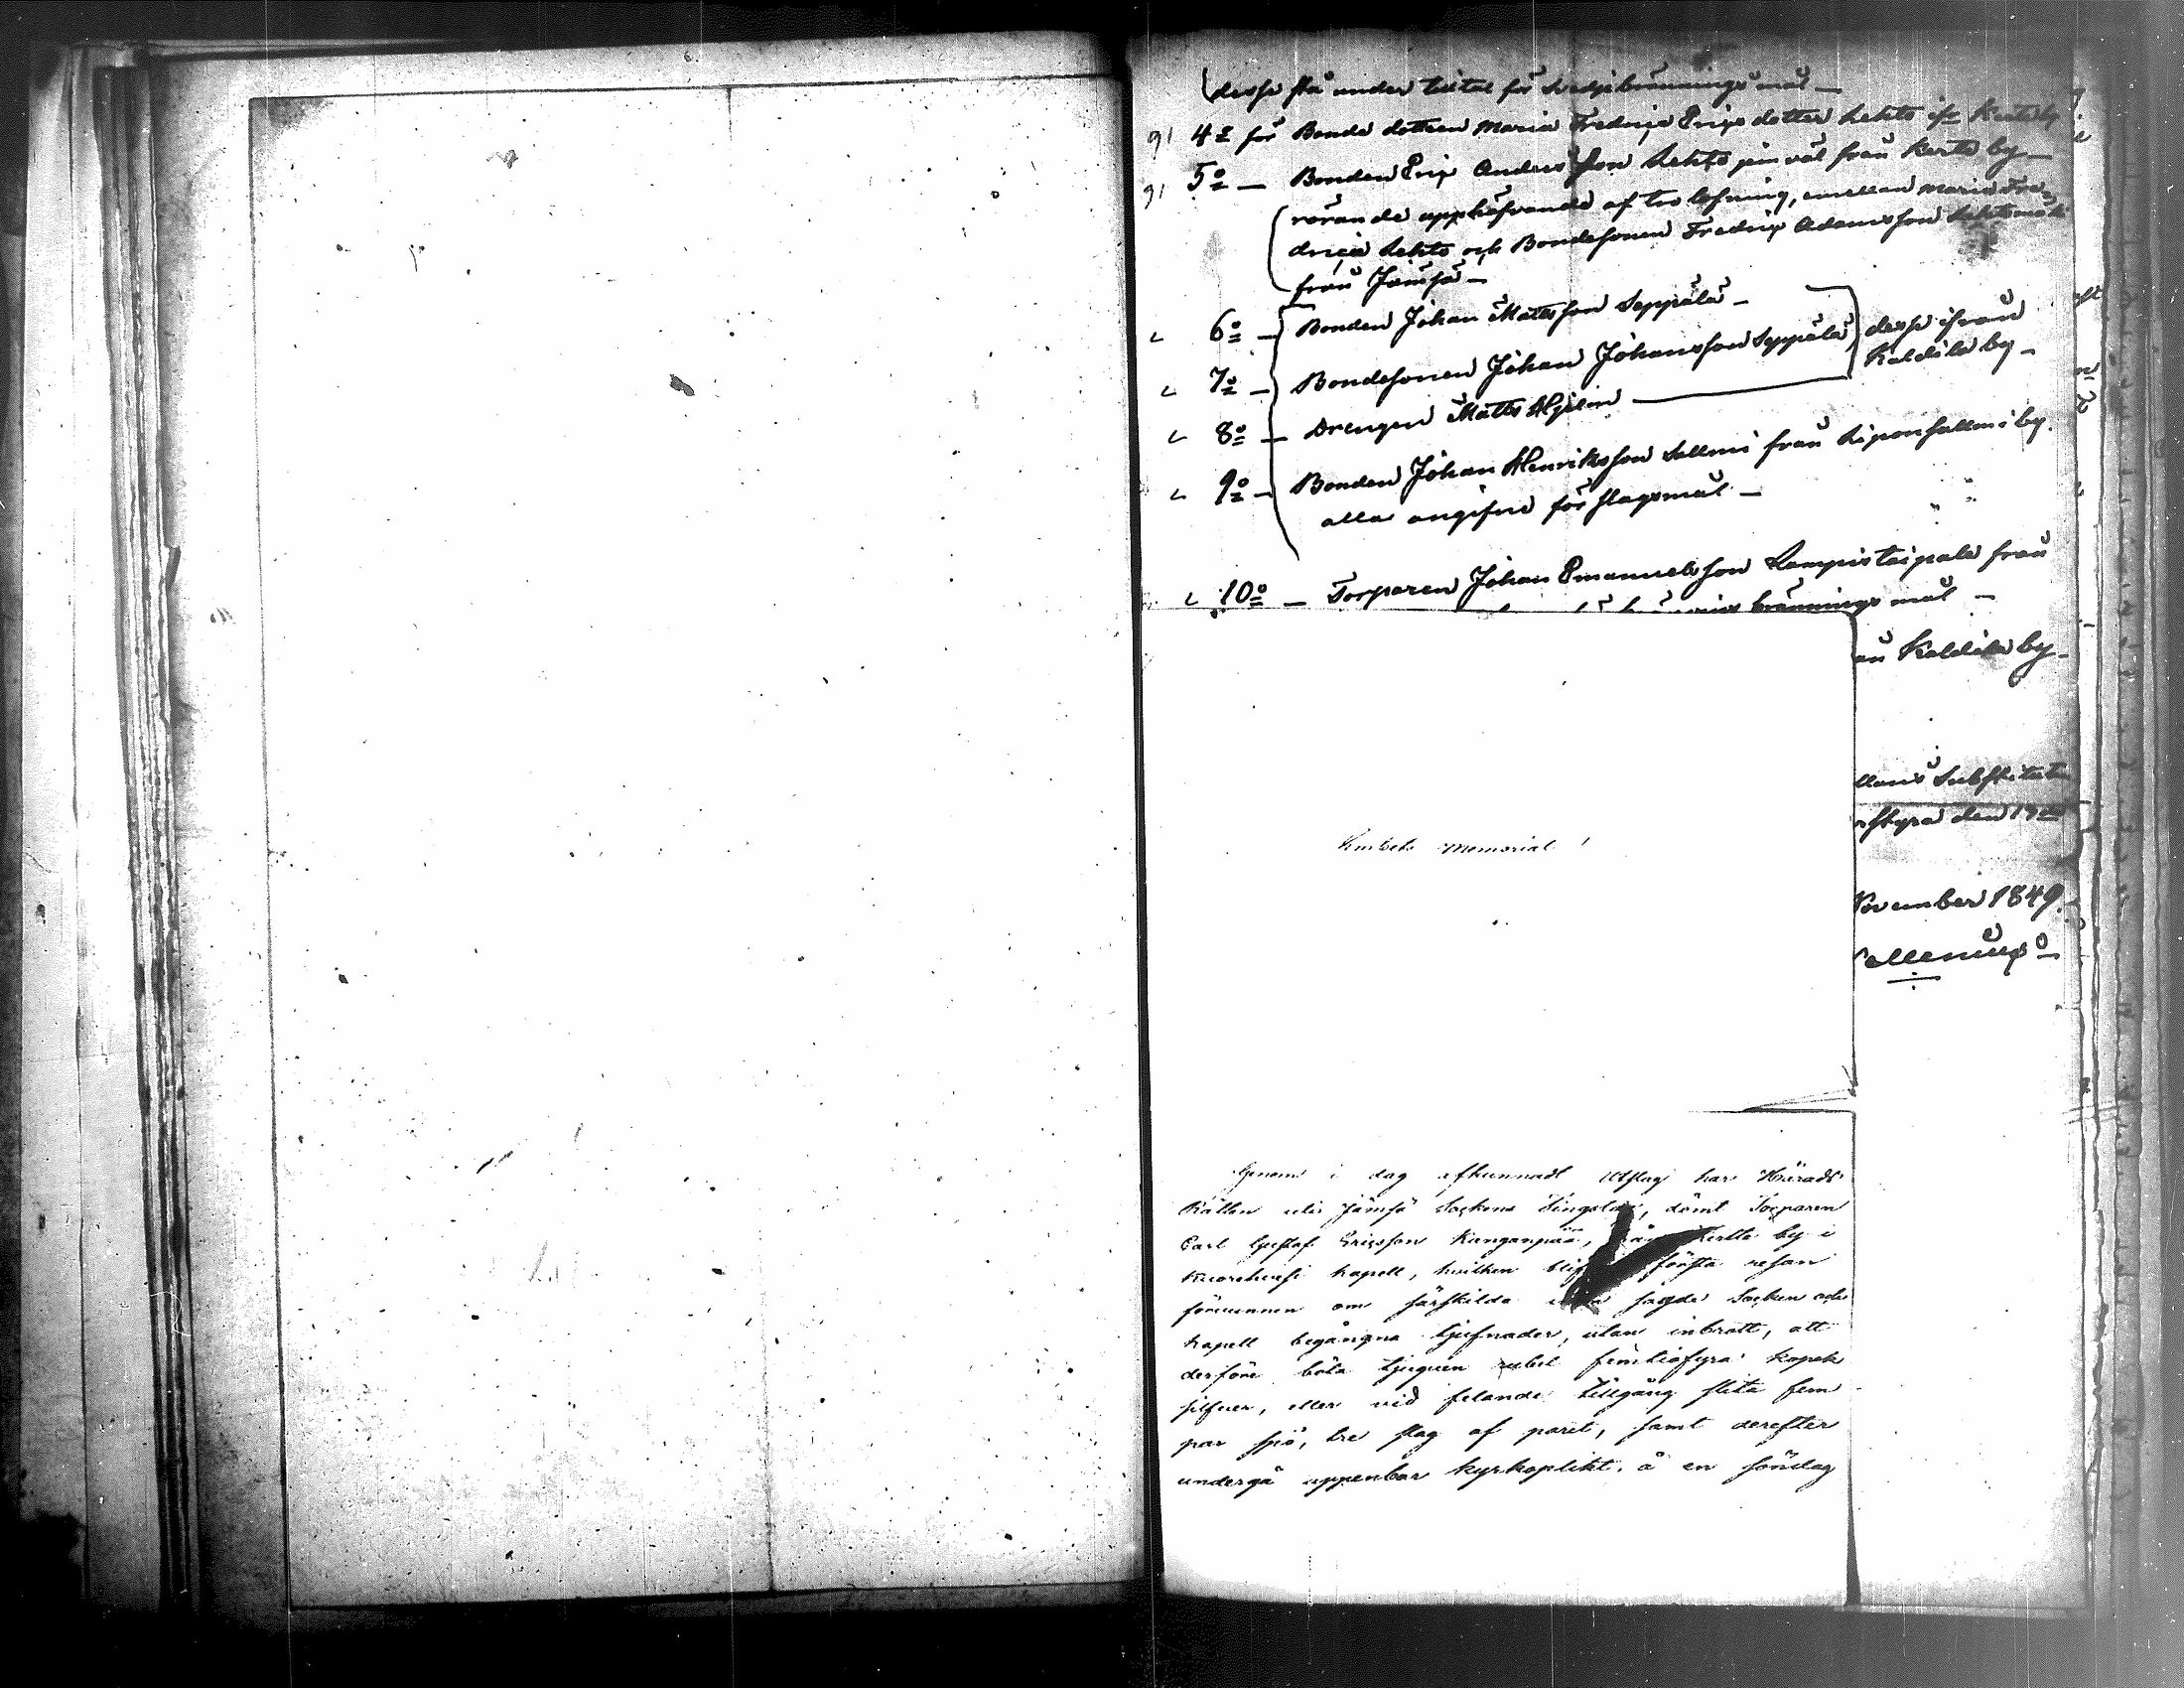 desse stå under tiltal för svedjebränningsmål —
91 4º för Bonde dottren Maria Fredrica Erics dotter Lehto ifr Kerteby
91 5º — Bonden Eric Andersson Lehto från Kerte by —
rörande upphäfvande af tro lofning, emellan Maria Fre-
drica Lehto och Bondesonen Fredric Adamsson
från Jämsä —
6º — Bonden Johan Mattsson Seppälä —
7º — Bondesonen Johan Johansson Seppälä desse ifrån
Kaldila by —
8º — Drengen Matts Hjelm
9º — Bonden Johan Henriksson Sallmi från by
alla angifne för slagsmål —
10º — Torparen Johan Emanuelsson från
brännings mål —
Kaldila by —
Substitut
styra den 13
November 1849.
Kort Memorial
Genom i dag afkunnadt Utslag har Härads
Rätten uti Jämsä Sockens Tingslag, dömt Torparen
Carl Gustaf Ericsson Kanganpää, från Kertte by i
Kuorehvesi kapell, hvilken blifvit första resan
förvunnen om särskilda sagde Socken och
kapell begångna tjufnader, utan inbrott, att
derföre böta tjuguen rubel femtiofyra kopek
silfver, eller vid felande tillgång slita fem
par spö, tre slag af paret, samt derefter
undergå uppenbar kyrkoplikt å en söndag